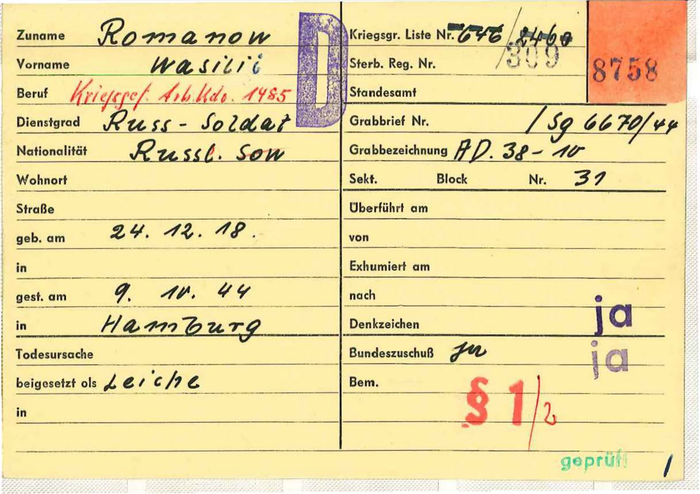 Zuname Romanow
Vorname Wasilii
Beruf Kriegsgef. Arb. Kdo. 1485
Dienstgrad Russ-Soldat
Nationalität Russl. Sow
Wohnort
Straße
geb. am 24. 12. 18.
in
gest. am 9. 10. 44
in Hamburg
Todesursache
beigesetzt als Leiche
in
D
Kriegsgr. Liste Nr. 646 /
Sterb. Reg. Nr. 309
8758
Standesamt
Grabbrief Nr. / Sg 6670/44
Grabbezeichnung AD. 38-10
Sekt. Block Nr. 31
Überführt am
von
Exhumiert am
nach
Denkzeichen ja
Bundeszuschuß ja ja
Bem.
§ 1/2
geprüft 1